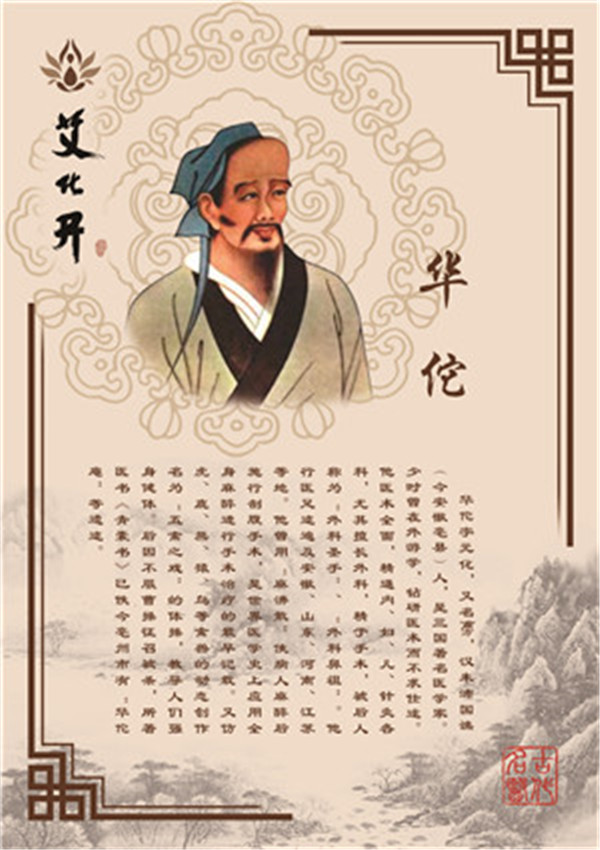 艾化开
华佗
华佗字元化，又名旉，汉末沛国谯
（今安徽亳县）人，是三国著名医学家。
少时曾在外游学，钻研医术而不求仕途。
他医术全面，精通内、妇、儿、针灸各
科，尤其擅长外科，精于手术，被后人
称为“外科圣手”、“外科鼻祖”。他
行医足迹遍及安徽、山东、河南、江苏
等地。他曾用“麻沸散”使病人麻醉后
施行剖腹手术，是世界医学史上应用全
身麻醉进行手术治疗的最早记载。又仿
虎、鹿、熊、猿、鸟等禽兽的动态创作
名为“五禽之戏”的体操，教导人们强
身健体。后因不服曹操征召被杀，所著
医书《青囊书》已佚今亳州市有“华佗
庵”等遗迹。
古代名医